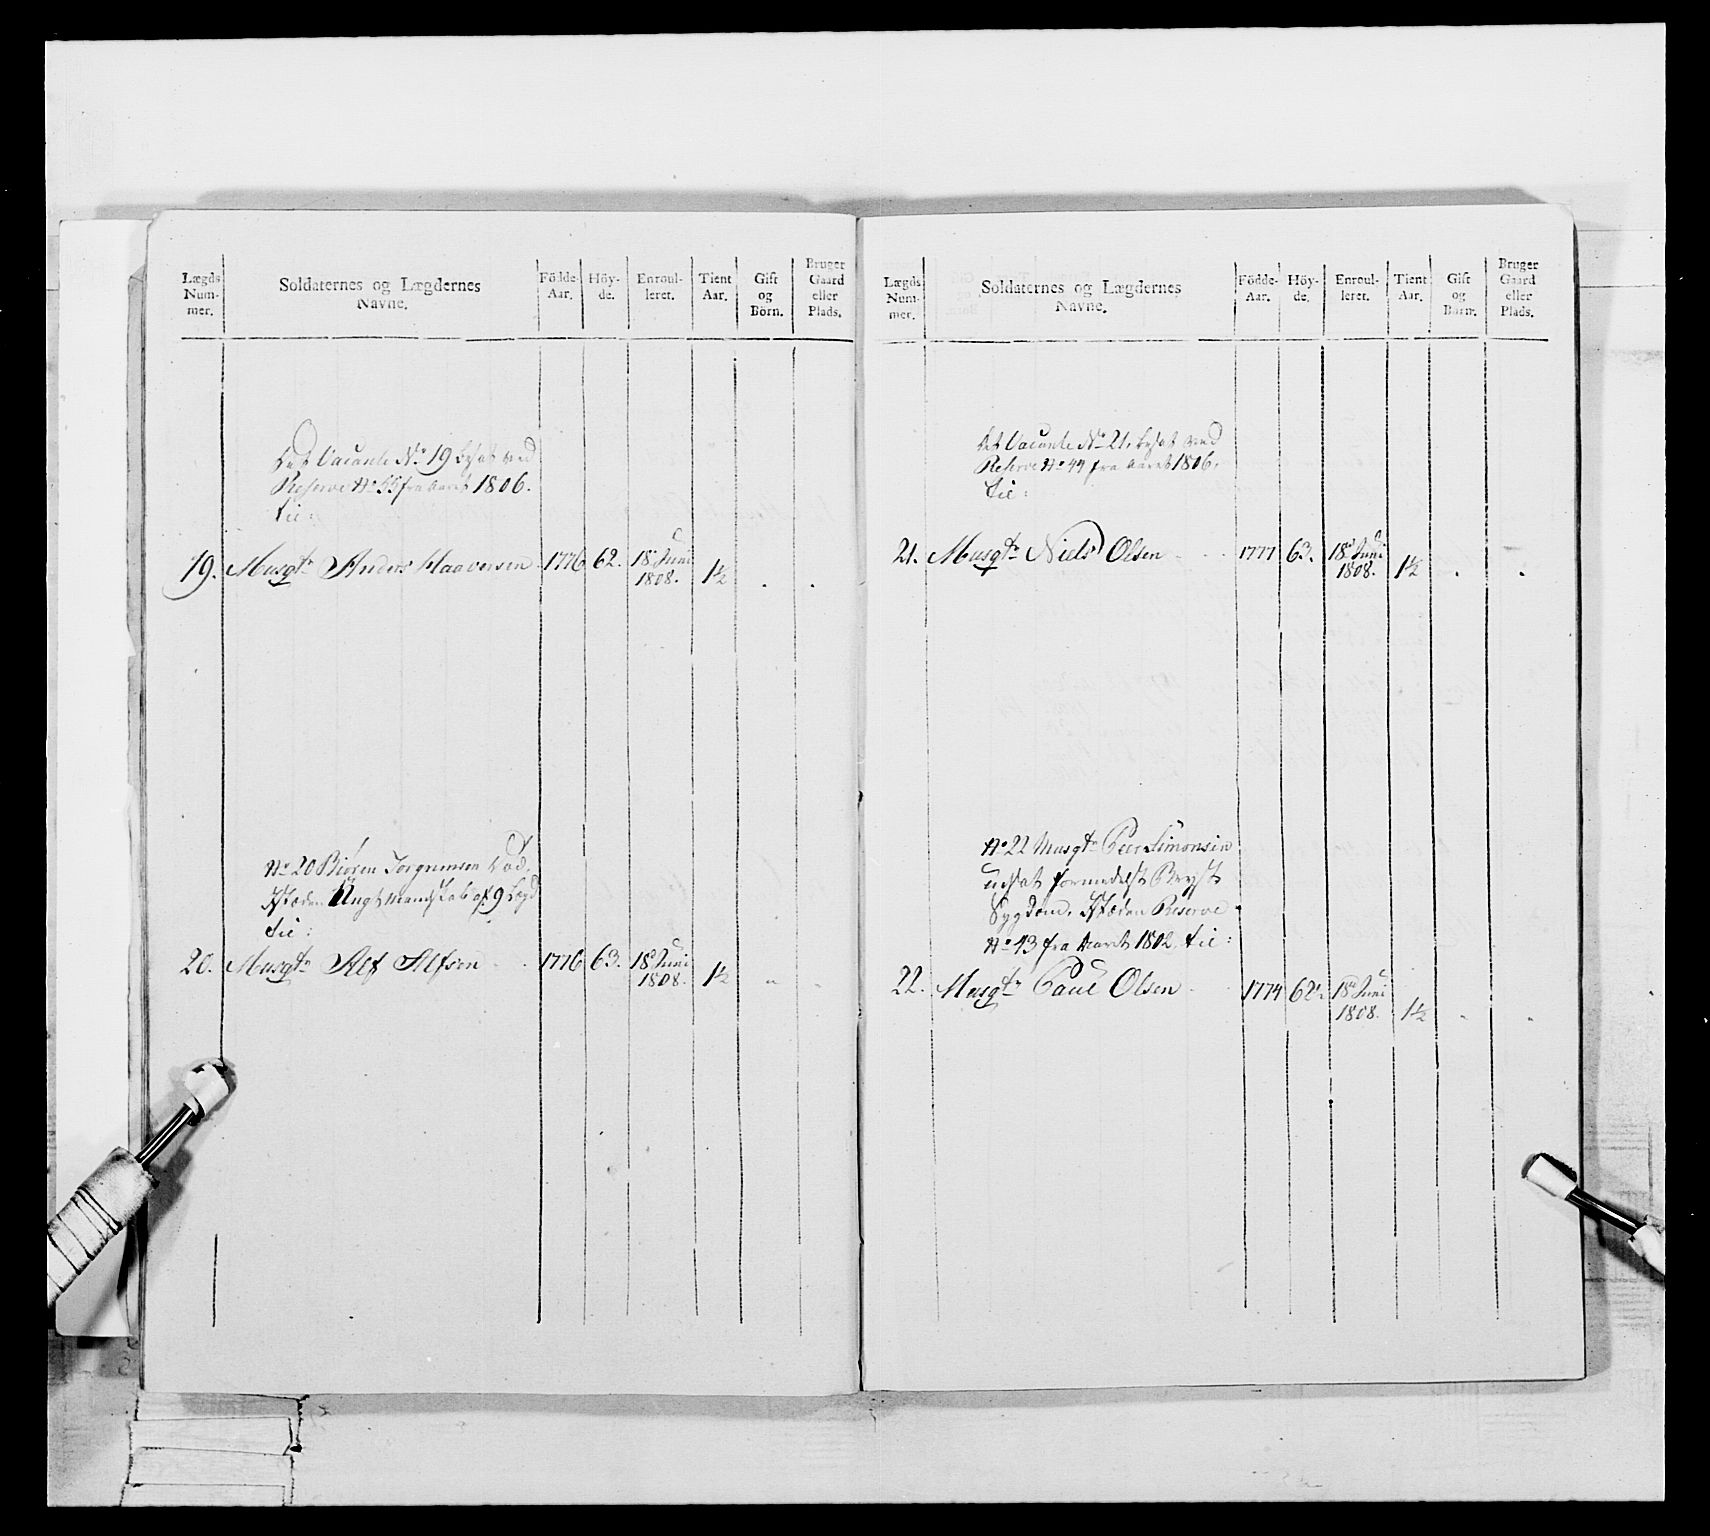 Lægds Num- mer.
Soldaternes og Lægdernes Navne.
Födde- Aar.
Höy- de.
Enroul- leret.
Tient Aar.
Gift og Börn.
Bruger Gaard eller Plads.
Det Vacante No 19 besat ved
Reserve No 55 fra Aaret 1806.
til:
19. Musqtr Anders Haaversen 1776 62. 18de Juni 1808. 1½
No 20 Biören Torgrimsen död,
Istæden Ungt Mandskab af 9 Lægd
til:
20. Musqtr Alf Alfsen 1776 63. 18de Juni 1808. 1½
Lægds Num- mer.
Soldaternes og Lægdernes Navne.
Födde- Aar.
Höy- de.
Enroul- leret.
Tient Aar.
Gift og Börn.
Bruger Gaard eller Plads.
Det Vacante No 21. besat ved
Reserve No 44 fra Aaret 1806.
til:
21. Musqtr Niels Olsen 1777 63. 18de Juni 1808. 1½
No 22 Musqtr Peer Simonsen
udsat formedelst Bryst
Sygdom, Istæden Reserve
No 43 fra Aaret 1802, til:
22. Musqtr Paul Olsen 1774 62½ 18de Juni 1808. 1½